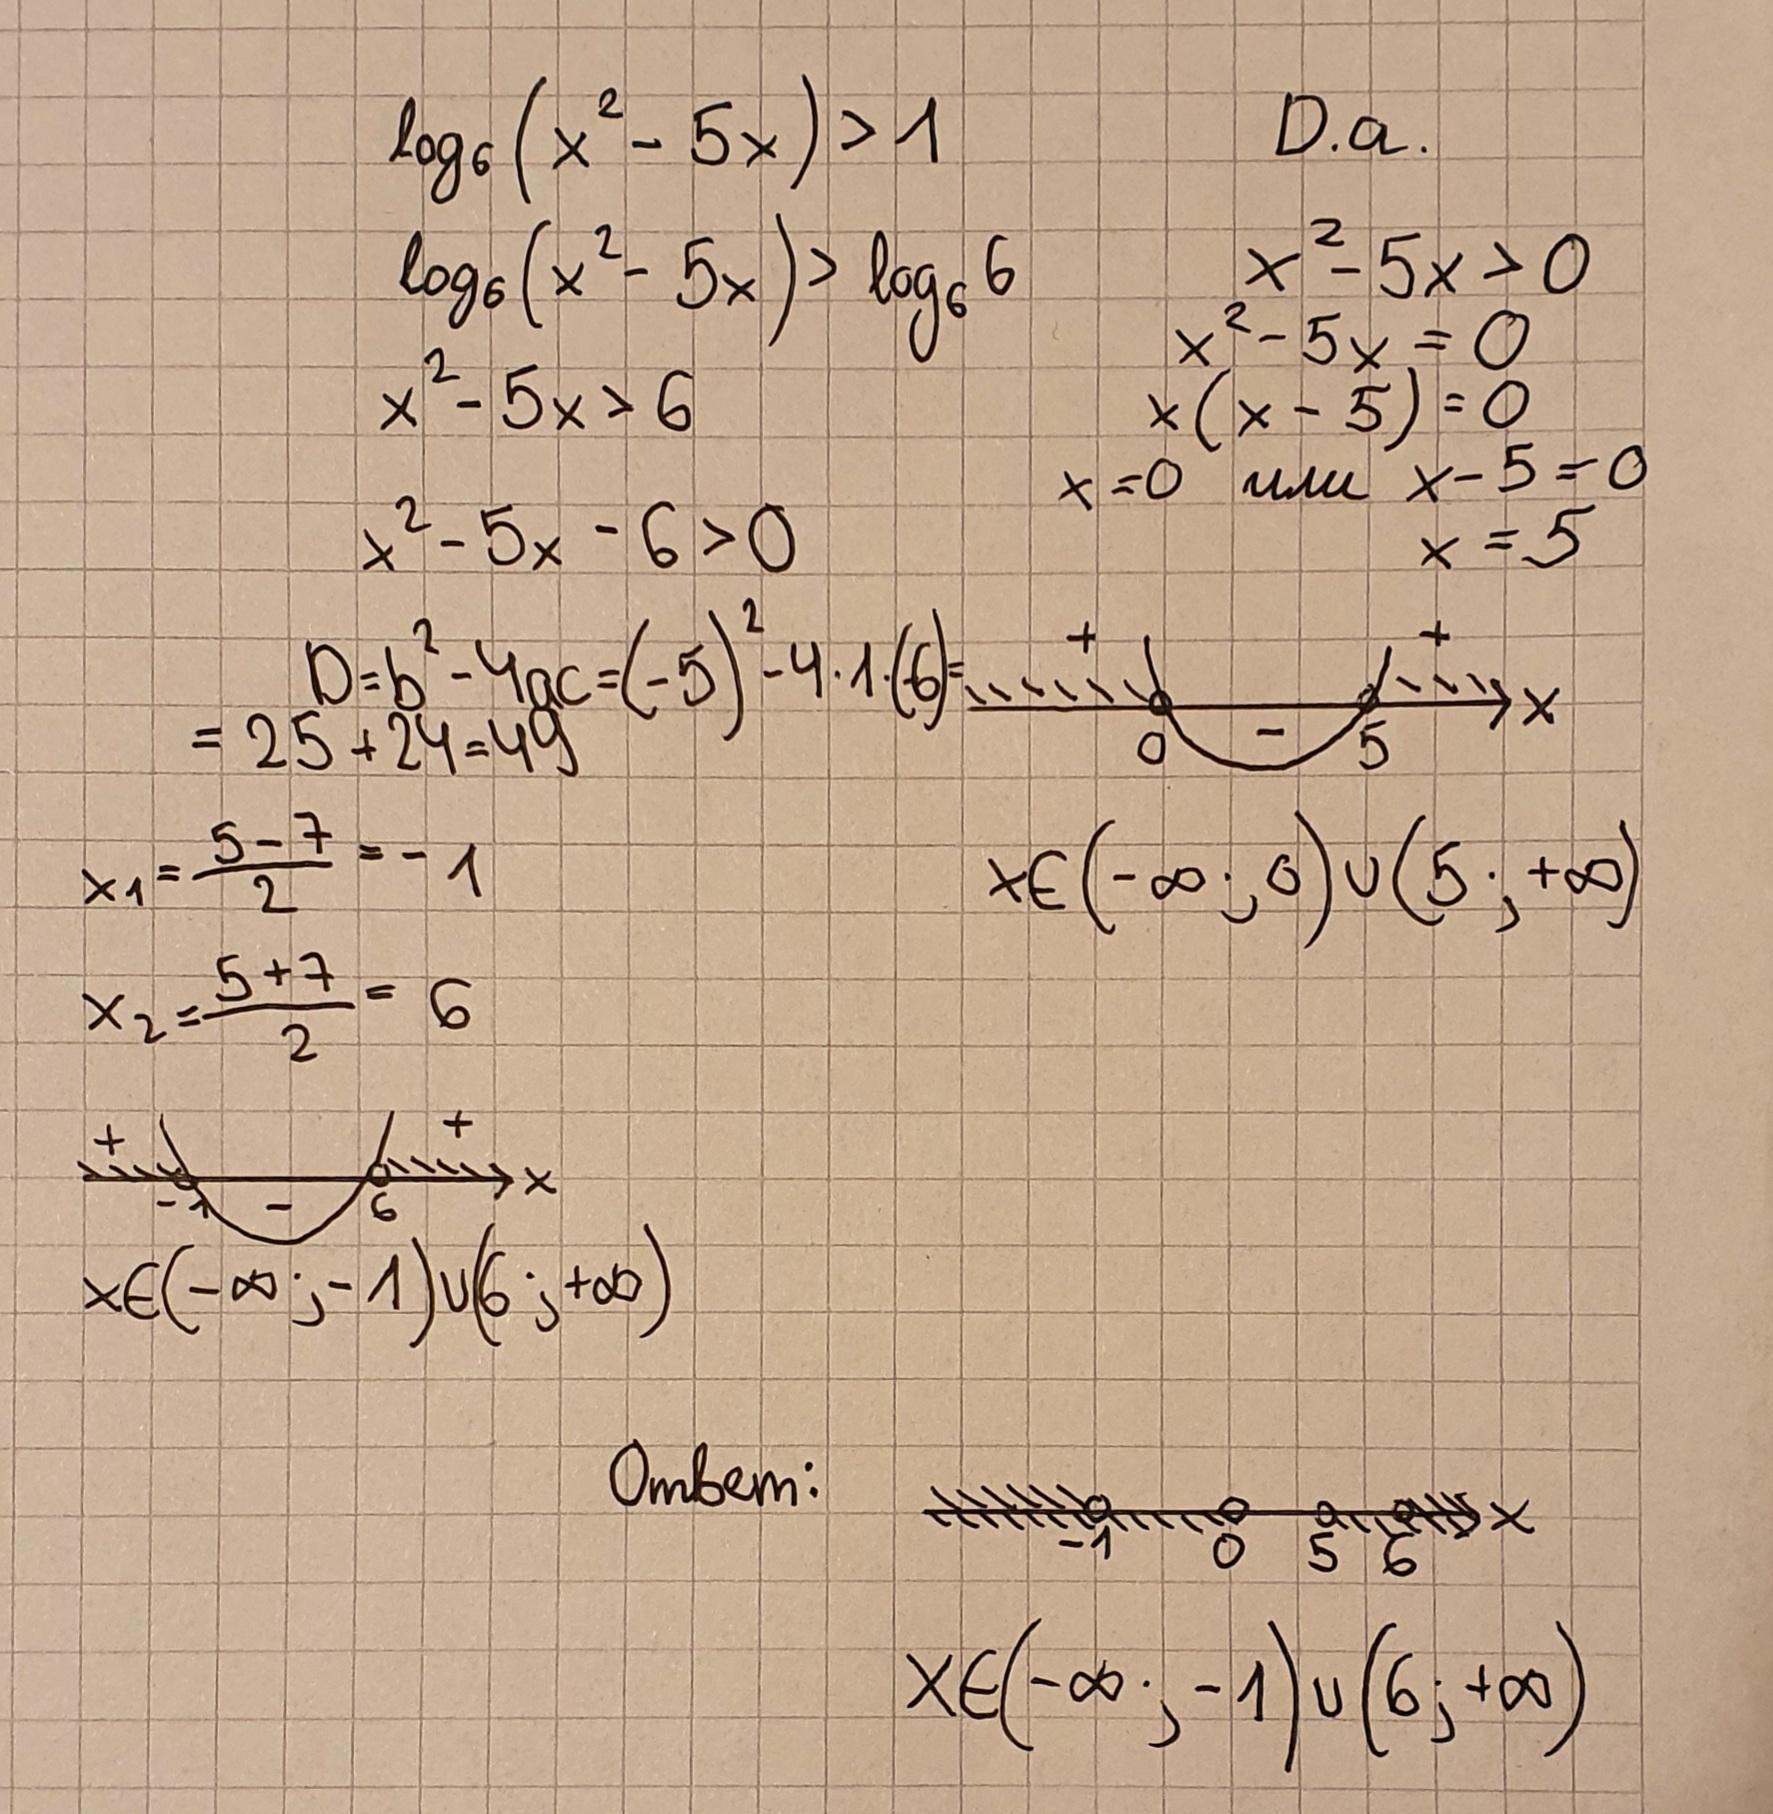 log₆(x² - 5x) > 1
log₆(x² - 5x) > log₆6
x² - 5x > 6
x² - 5x - 6 > 0
D = b² - 4ac = (-5)² - 4·1·(-6) =
= 25 + 24 = 49
x₁ = (5-7)/2 = -1
x₂ = (5+7)/2 = 6
+ +
-1 - 6 x
x∈(-∞; -1)∪(6; +∞)
D.a.
x² - 5x > 0
x² - 5x = 0
x(x - 5) = 0
x = 0 или x - 5 = 0
x = 5
+ +
0 - 5 x
x∈(-∞; 0)∪(5; +∞)
Ответ:
-1 0 5 6 x
x∈(-∞; -1)∪(6; +∞)